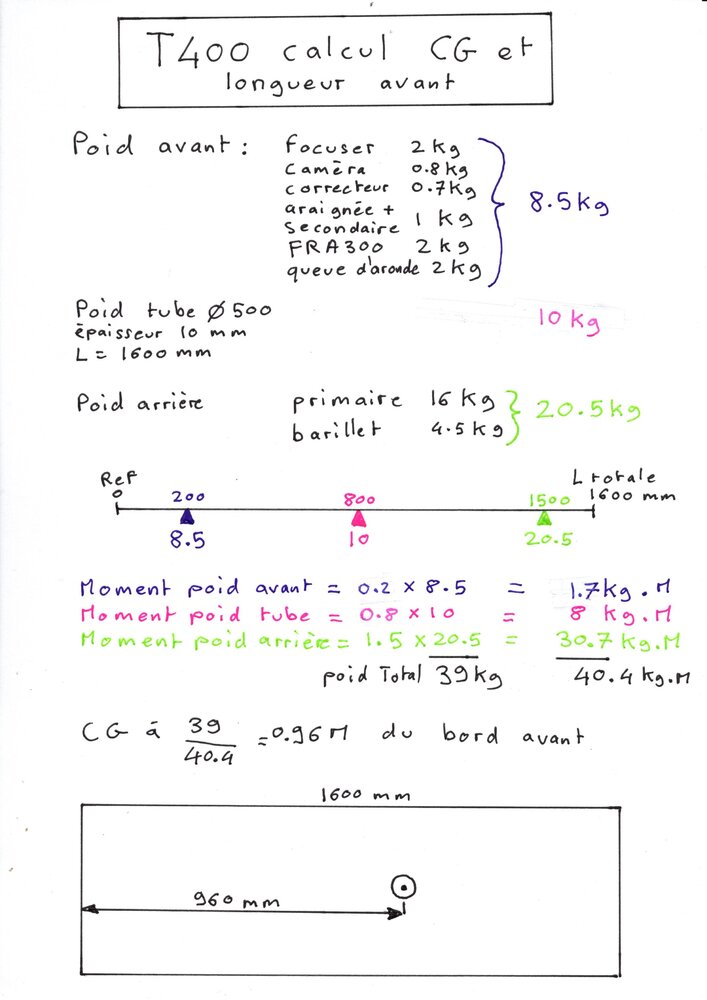 T400 calcul CG et
longueur avant
Poid avant : focuser 2 kg
caméra 0.8 kg
correcteur 0.7 kg
araignée +
secondaire 1 kg
FRA300 2 kg
queue d'aronde 2 kg
8.5 kg
Poid tube Ø 500
épaisseur 10 mm
L = 1600 mm
10 kg
Poid arrière primaire 16 kg
barillet 4.5 kg
20.5 kg
Ref L totale
0 200 800 1500 1600 mm
8.5 10 20.5
Moment poid avant = 0.2 x 8.5 = 1.7 kg . M
Moment poid tube = 0.8 x 10 = 8 kg . M
Moment poid arrière = 1.5 x 20.5 = 30.7 kg . M
poid Total 39 kg 40.4 kg . M
CG à 39 / 40.4 = 0.96 M du bord avant
1600 mm
960 mm